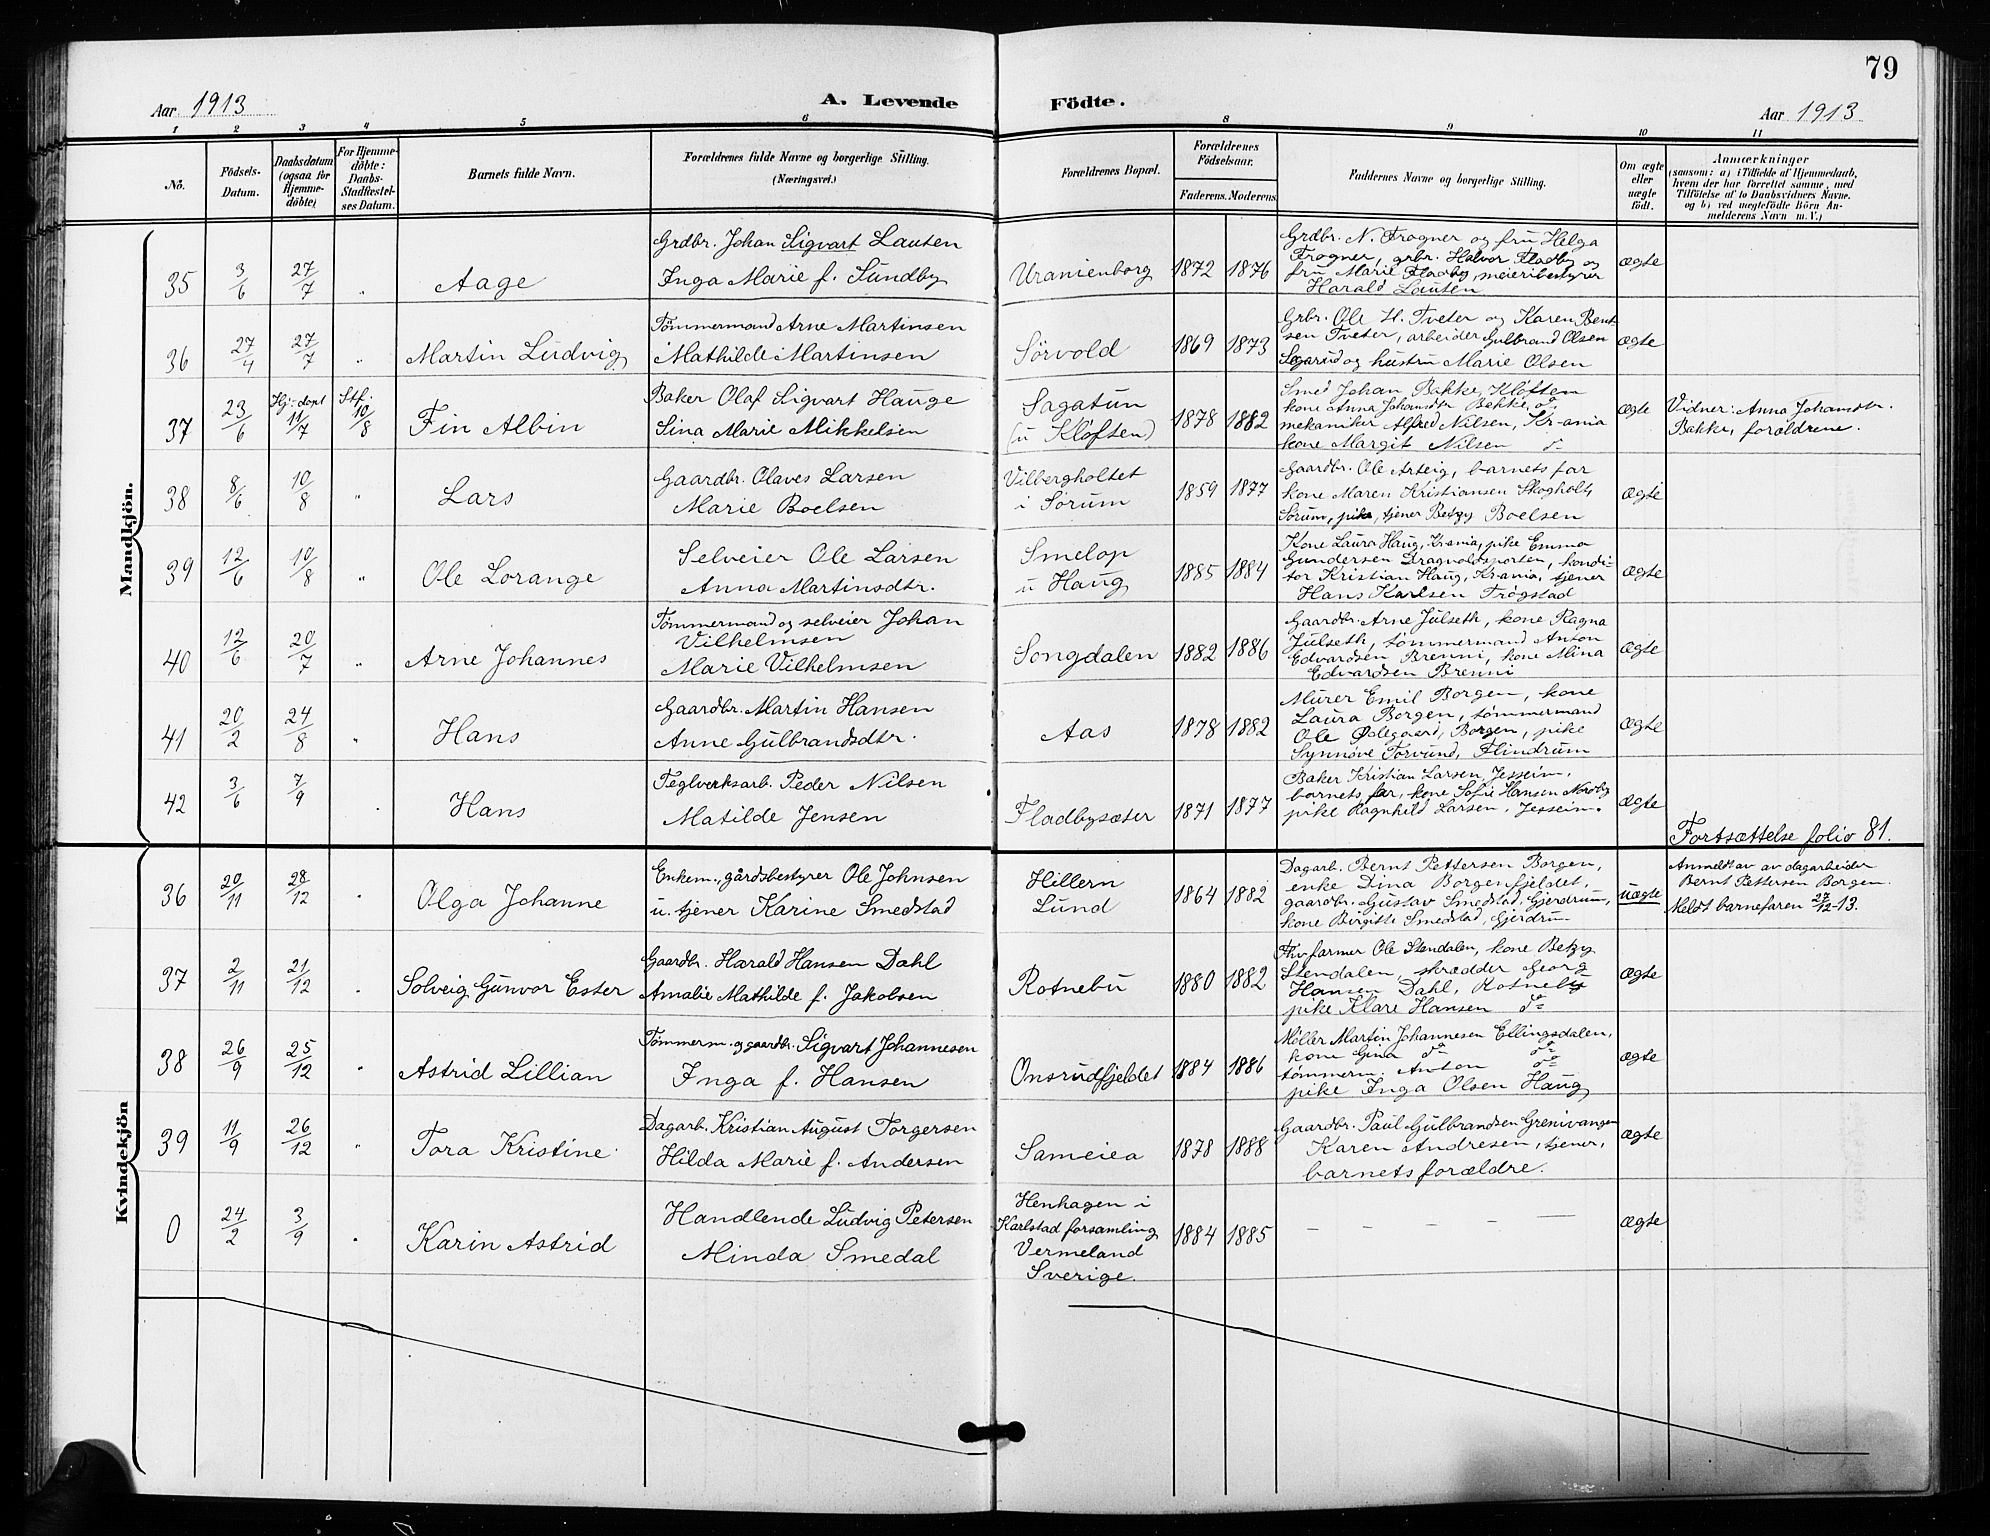 79
Aar 1913
A. Levende
Födte.
Aar 1913
1 2 3 4 5 6 8 9 10 11
No.
Födsels-
Datum.
Daabsdatum
(ogsaa for
Hjemme-
döbte)
For Hjemme-
döbte:
Daabs-
Stadfæstel-
ses Datum.
Barnets fulde Navn.
Forældrenes fulde Navne og borgerlige Stilling.
(Næringsvei.)
Forældrenes Bopæl.
Forældrenes
Födselsaar.
Faderens. Moderens.
Faddernes Navne og borgerlige Stilling.
Om ægte
eller
uægte
födt.
Anmærkninger
(saasom: a) i Tilfælde af Hjemmedaab,
hvem der har forrettet samme, med
Tilföielse af to Daabsvidners Navne.
og b) ved uægtefödte Börn An-
melderens Navn m. V.)
Mandkjön.
35
3/6
27/7
"
Aage
Grdbr. Johan Sigvart Lauten
Inga Marie f. Sundby
Uranienborg
1872 1876
Grdbr. N. Frogner og fru Helga
Frogner, grbr. Halvor Fladby og
fru Marie Fladby, meieribestyrer
Harald Lauten
ægte
36
27/4
27/7
"
Martin Ludvig
Tømmermand Arne Martinsen
Mathilde Martinsen
Sörvold
1869 1873
Grbr. Ole H. Tveter og Karen Bent-
sen Tveter, arbeider Gulbrand Olsen
Sogarud og hustru Marie Olsen
ægte
37
23/6
Hj-døpt
11/7
Stf.
10/8
Fin Albin
Baker Olaf Sigvart Hauge
Sina Marie Mikkelsen
Sagatun
(u Kløften)
1878 1882
Smed Johan Bakke, Kløften
kone Anna Johansdtr Bakke, do
mekaniker Alfred Nilsen, Kr-ania
kone Margit Nilsen do
ægte
Vidner: Anna Johansdtr.
Bakke, forældrene.
38
8/6
10/8
"
Lars
Gaardbr. Olaves Larsen
Marie Boelsen
Vilbergholtet
i Sørum
1859 1877
Gaardbr. Ole Arteig, barnets far
kone Maren Kristiansen Skogholt,
Sørum, pike, tjener Betzy Boelsen
ægte
39
12/6
10/8
"
Ole Lorange
Selveier Ole Larsen
Anna Martinsdtr.
Smelop
u Haug
1885 1884
Kone Laura Haug, Kr.ania, pike Emma
Gundersen Dragvoldsporten, kondi-
tor Kristian Haug, Kr.ania, tjener
Hans Karlsen Trøgstad
ægte
40
12/6
20/7
"
Arne Johannes
Tømmermand og selveier Johan
Vilhelmsen
Marie Vilhelmsen
Songdalen
1882 1886
Gaardbr. Arne Julseth, kone Ragna
Julseth, tømmermand Anton
Edvardsen Brenni, kone Mina
Edvardsen Brenni
ægte
41
20/2
24/8
"
Hans
Gaardbr. Martin Hansen
Anne Gulbrandsdtr.
Aas
1878 1882
Murer Emil Borgen, kone
Laura Borgen, tømmermand
Ole Ødegaard, Borgen, pike
Synnøve Torvund, Flindrum
ægte
42
3/6
7/9
Hans
Teglverksarb. Peder Nilsen
Matilde Jensen
Fladbysæter
1871 1877
Baker Kristian Larsen, Jesseim,
barnets far, kone Sofie Hansen Nordby
pike Ragnhild Larsen, Jesseim.
ægte
Fortsættelse folio 81.
Kvindekjön
36
20/11
28/12
"
Olga Johanne
Enkem., gårdsbestyrer Ole Johnsen
u. tjener Karine Smedstad
Hillern
Lund
1864 1882
Dagarb. Bernt Pettersen Borgen,
enke Dina Borgenfjeldet,
gaardbr. Gustav Smedstad, Gjerdrum,
kone Birgitte Smedstad, Gjerdrum
uægte
Anmeldt av av dagarbeider
Bernt Pettersen Borgen.
Meldt barnefaren 27/12-13.
37
2/11
21/12
"
Solveig Gunvor Ester
Gaardbr. Harald Hansen Dahl
Amalie Mathilde f. Jakobsen
Rotnebu
1880 1882
Fhv farmer Ole Stendalen, kone Betzy
Stendalen, skrædder Georg
Hansen Dahl, Rotneby
pike Klare Hansen do
ægte
38
26/9
25/12
"
Astrid Lillian
Tømmerm. og gaardbr. Sigvart Johannesen
Inga f. Hansen
Onsrudfjeldet
1884 1886
Møller Martin Johannesen Ellingsdalen,
kone Gina do do
tømmerm. Anton do
pike Inga Olsen Haug
ægte
39
11/9
26/12
"
Tora Kristine
Dagarb. Kristian August Torgersen
Hilda Marie f. Andersen
Sameiea
1878 1888
Gaardbr. Paul Gulbrandsen Grenivangen
Karen Andresen, tjener,
barnets forældre.
ægte
0
24/2
3/9
"
Karin Astrid
Handlende Ludvig Petersen
Minda Smedal
Henhagen i
Karlstad forsamling
Vermeland
Sverige.
1884 1885
– – – – –
ægte